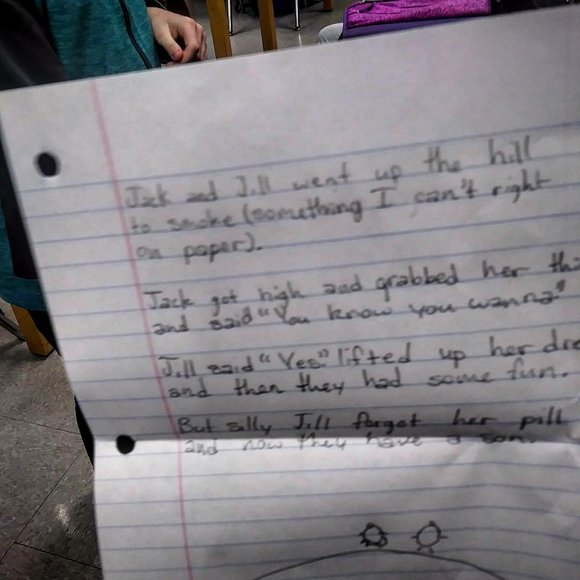 Jack and Jill went up the hill
to smoke (something I can't right
on paper).
Jack got high and grabbed her thi
and said "You know you wanna"
Jill said "Yes." lifted up her dre
and then they had some fun.
But silly Jill forgot her pill
and now they have a son.